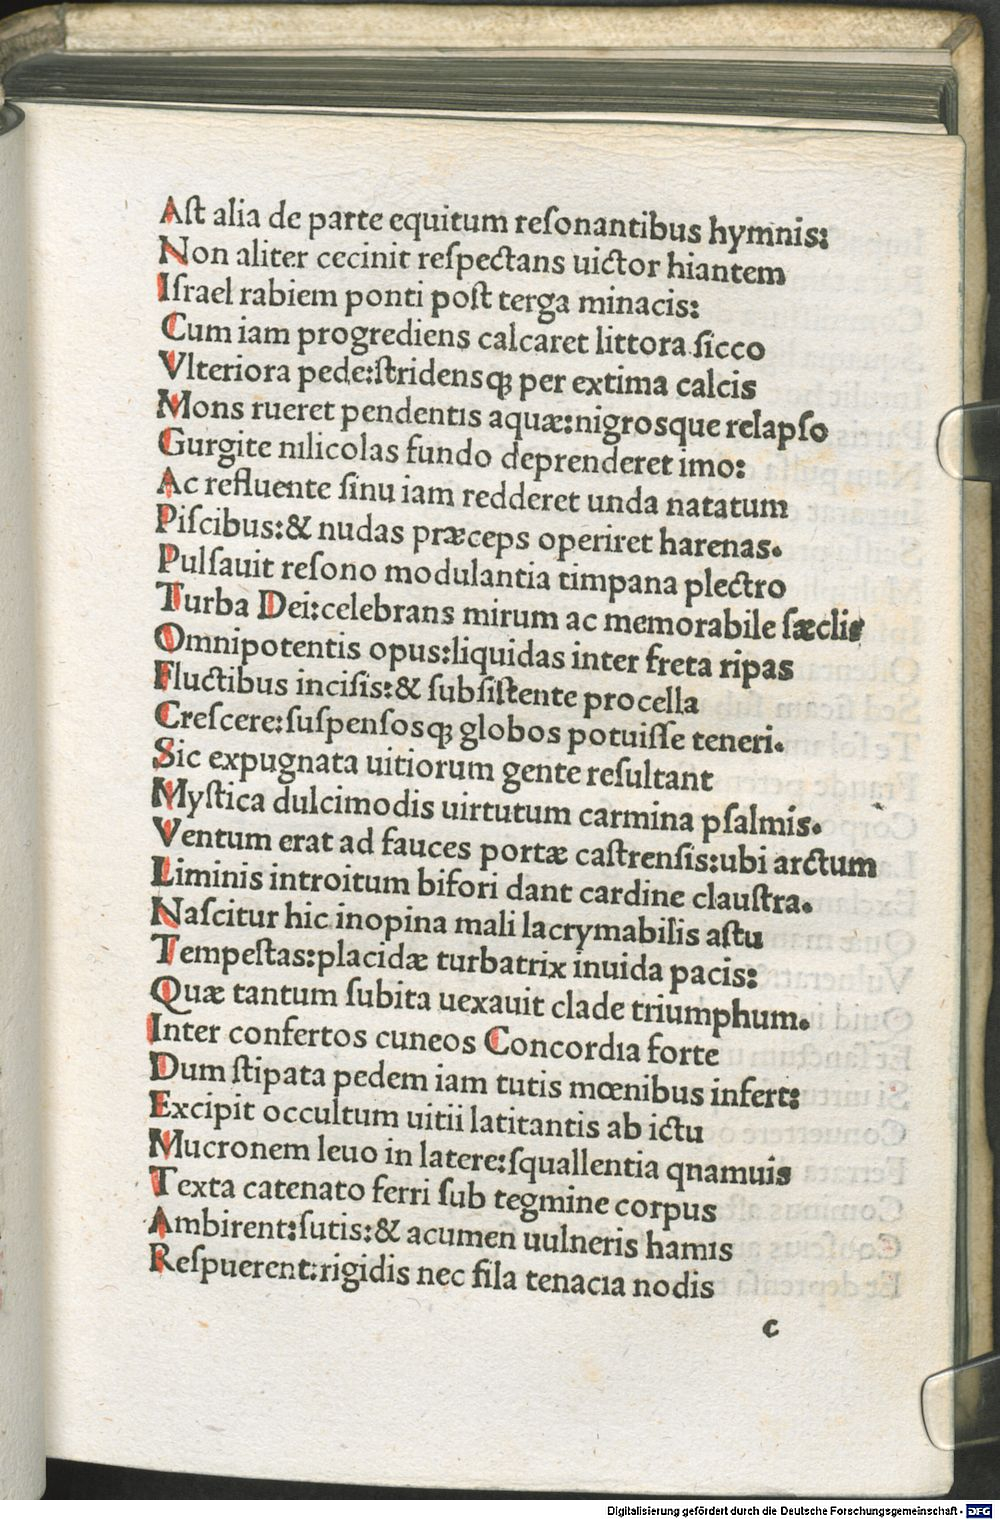 Aſt alia de parte equitum reſonantibus hymnis:
Non aliter cecinit reſpectans uictor hiantem
Iſrael rabiem ponti poſt terga minacis:
Cum iam progrediens calcaret littora ſicco
Vlteriora pede:ſtridensꝗ per extima calcis
Mons rueret pendentis aquæ:nigrosque relapſo
Gurgite nilicolas fundo deprenderet imo:
Ac refluente ſinu iam redderet unda natatum
Piſcibus:& nudas præceps operiret harenas.
Pulſauit reſono modulantia timpana plectro
Turba Dei:celebrans mirum ac memorabile ſæclis
Omnipotentis opus:liquidas inter freta ripas
Fluctibus inciſis:& ſubſiſtente procella
Creſcere:ſuſpenſosꝗ globos potuiſſe teneri.
Sic expugnata uitiorum gente reſultant
Myſtica dulcimodis uirtutum carmina pſalmis.
Ventum erat ad fauces portæ caſtrenſis:ubi arctum
Liminis introitum bifori dant cardine clauſtra.
Naſcitur hic inopina mali lacrymabilis aſtu
Tempeſtas:placidæ turbatrix inuida pacis:
Quæ tantum ſubita uexauit clade triumphum.
Inter confertos cuneos Concordia forte
Dum ſtipata pedem iam tutis mœnibus infert:
Excipit occultum uitii latitantis ab ictu
Mucronem leuo in latere:ſquallentia qnamuis
Texta catenato ferri ſub tegmine corpus
Ambirent:ſutis:& acumen uulneris hamis
Reſpuerent:rigidis nec fila tenacia nodis
c
Digitalisierung gefördert durch die Deutsche Forschungsgemeinschaft - DFG